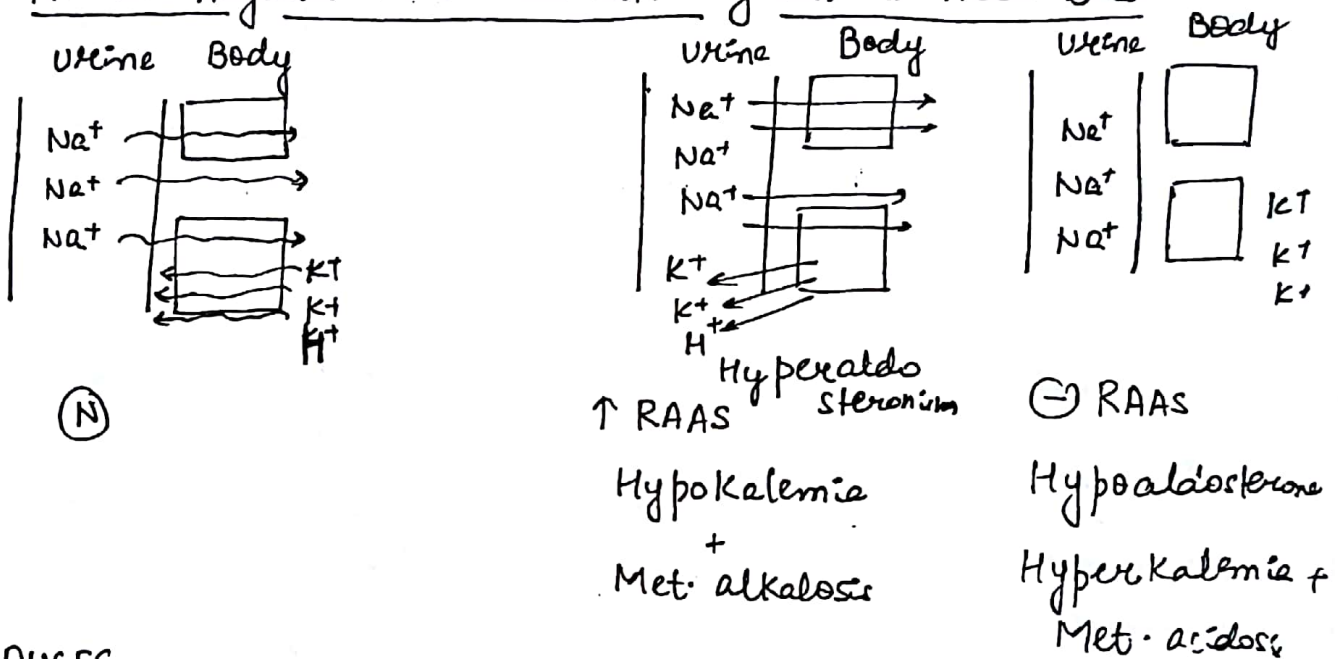 Urine Body
Na+
Na+
Na+
K+
K+
H+
N
Urine Body
Na+
Na+
Na+
K+
K+
H+
Hyperaldo
steronism
↑ RAAS
Hypokalemia
+
Met. alkalosis
Urine Body
Na+
Na+
Na+
K+
K+
K+
⊖ RAAS
Hypoaldosterone
Hyperkalemia +
Met. acidosis